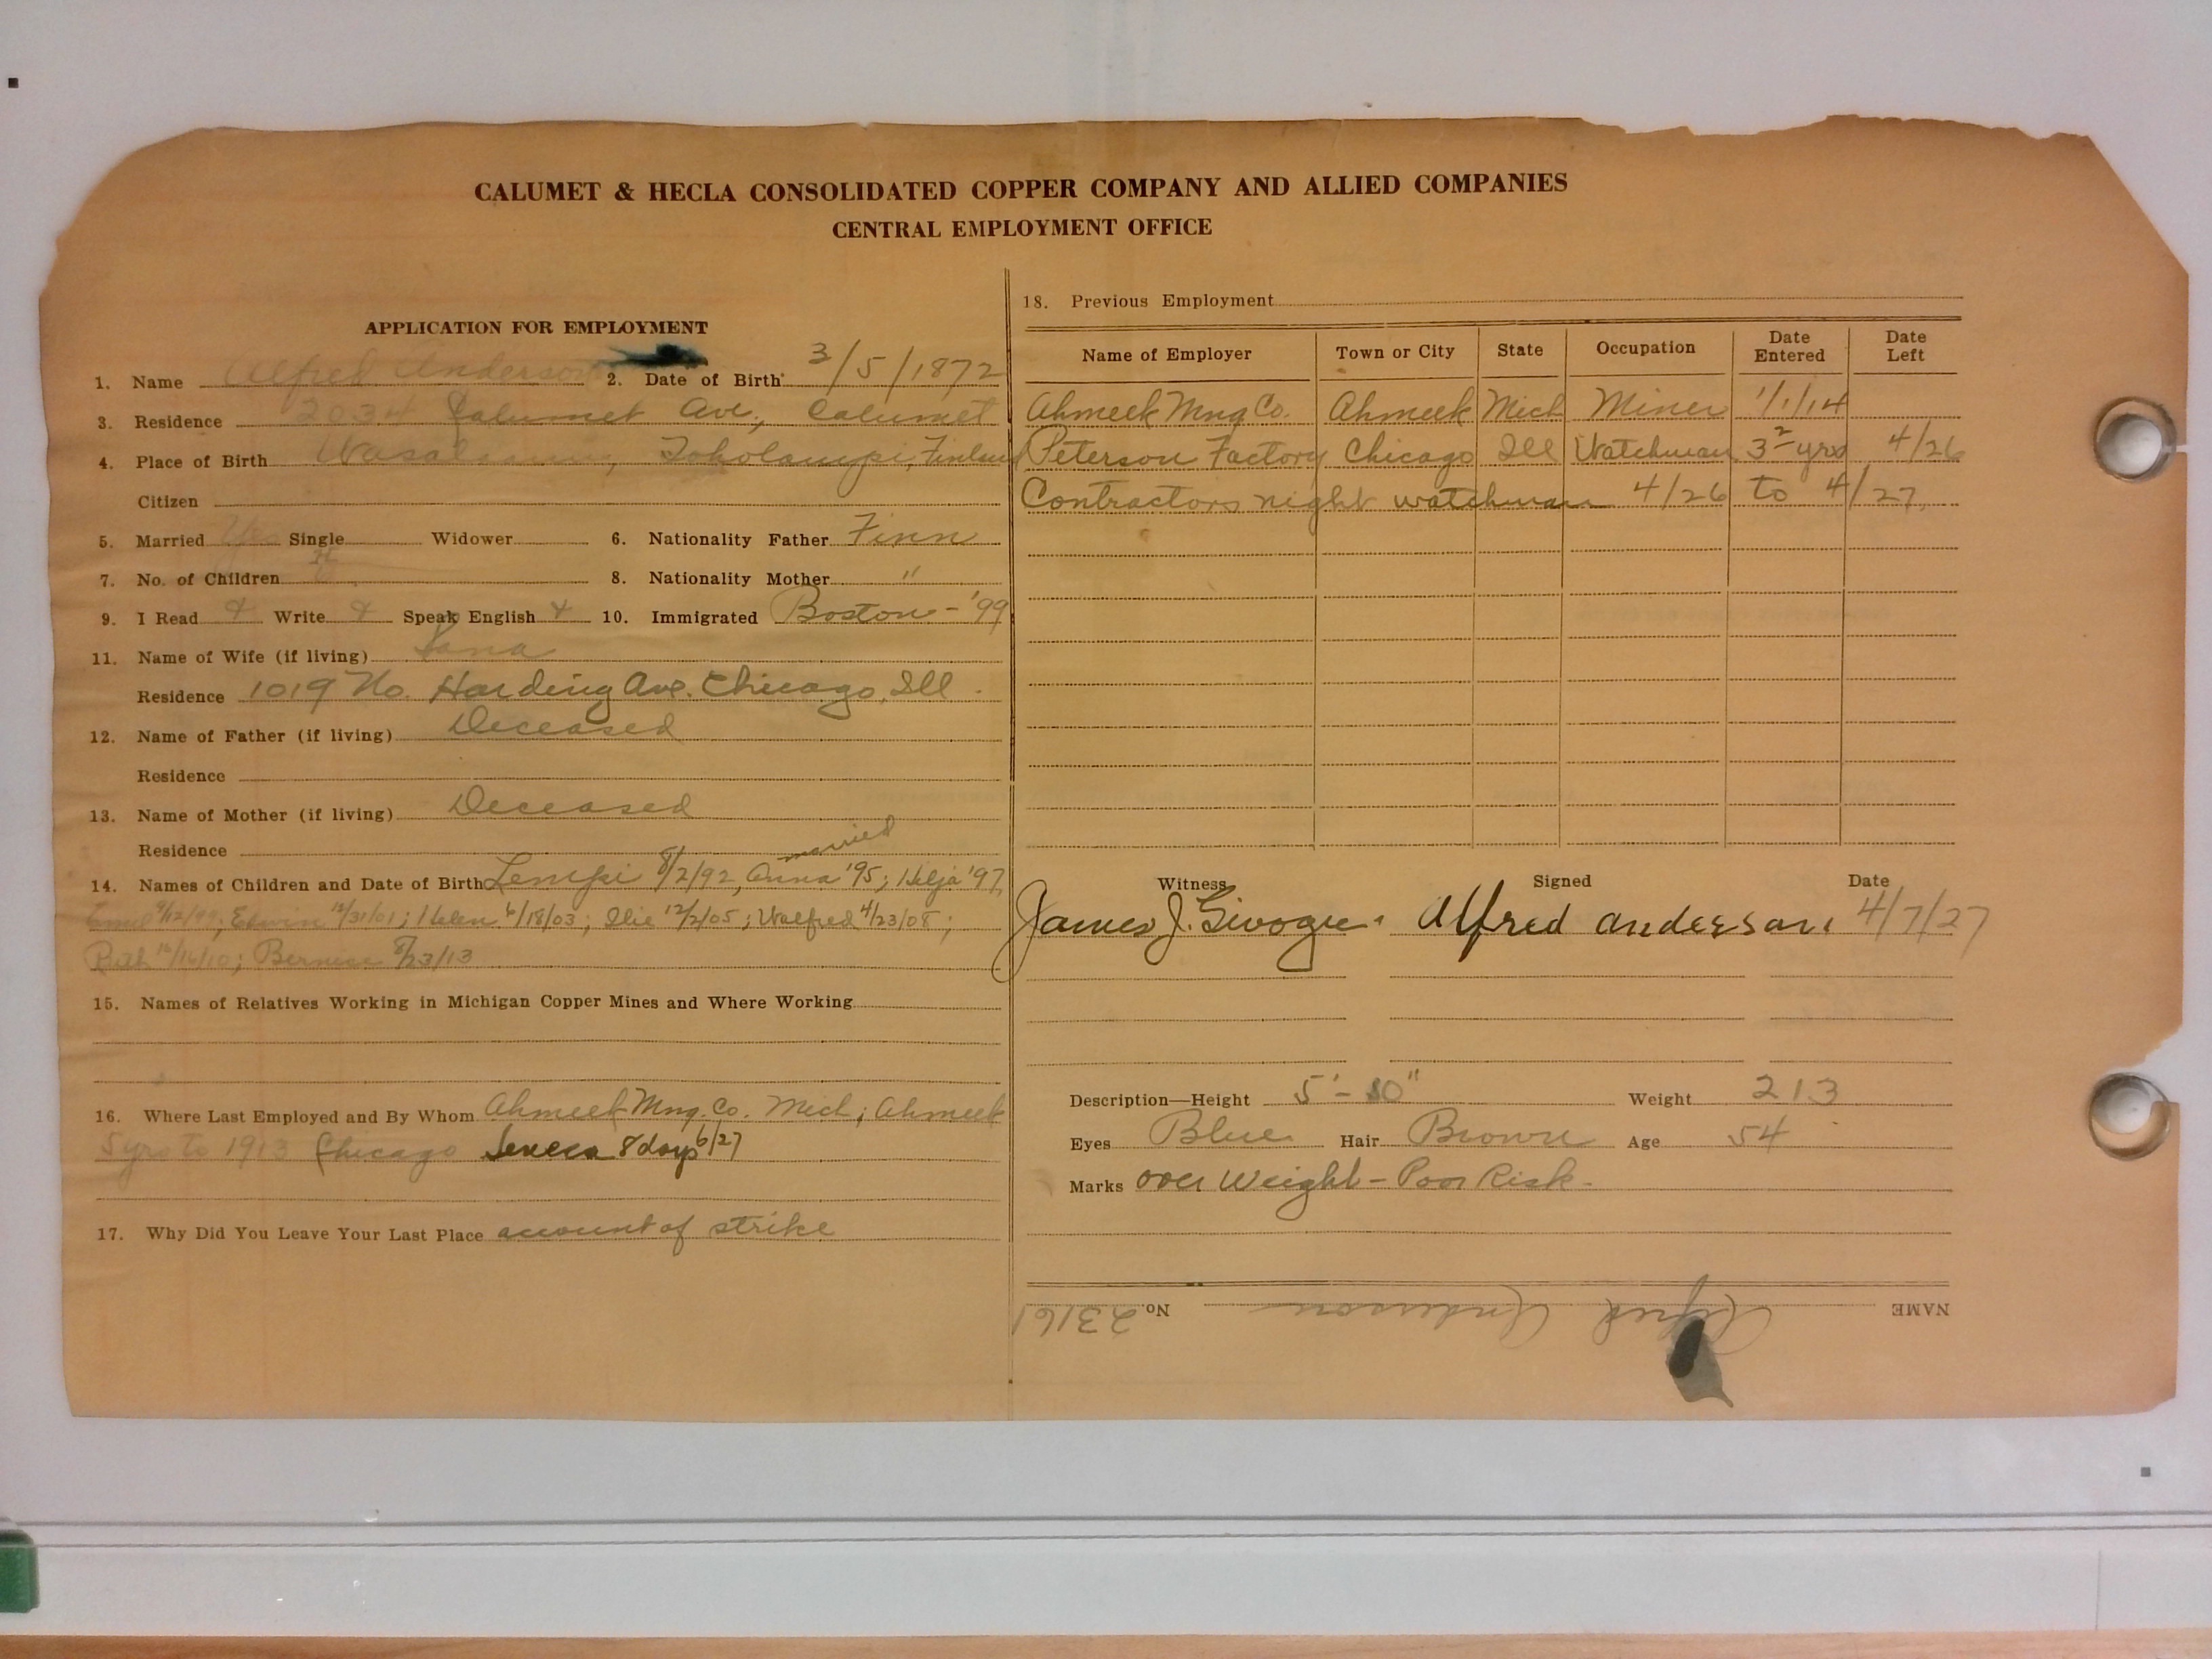 CALUMET & HECLA CONSOLIDATED COPPER COMPANY AND ALLIED COMPANIES
CENTRAL EMPLOYMENT OFFICE
APPLICATION FOR EMPLOYMENT
1. Name Alfred Anderson 2. Date of Birth 3/5/1872
3. Residence 2034 Calumet Ave, Calumet
4. Place of Birth Toholampi, Finland
Citizen
5. Married Yes Single Widower 6. Nationality Father Finn
7. No. of Children 8. Nationality Mother "
9. I Read Write Speak English 10. Immigrated Boston - '99
11. Name of Wife (if living)
Residence 1019 No. Harding Ave. Chicago, Ill.
12. Name of Father (if living) Deceased
Residence
13. Name of Mother (if living) Deceased
Residence
married
14. Names of Children and Date of Birth Lempi 8/2/92, Anna '95; Hilja '97,
9/12/99; Edwin 12/31/01; Helen 6/18/03; 12/2/05; Walfred 4/23/08;
Ruth /16/10; Bernice 8/23/13
15. Names of Relatives Working in Michigan Copper Mines and Where Working
16. Where Last Employed and By Whom Ahmeek Mng. Co. Mich; Ahmeek
5 yrs to 1913 Chicago Seneca 8 days 6/27
17. Why Did You Leave Your Last Place account of strike
18. Previous Employment
Name of Employer Town or City State Occupation Date Entered Date Left
Ahmeek Mng Co. Ahmeek Mich Miner 1/1/14
Peterson Factory Chicago Ill Watchman 3 yrs 4/26
Contractors night watchman 4/26 to 4/27
Witness Signed Date
James J. Alfred Anderson 4/7/27
Description—Height 5'-10" Weight 213
Eyes Blue Hair Brown Age 54
Marks Over Weight - Poor Risk.
NAME Alfred Anderson No. 23161